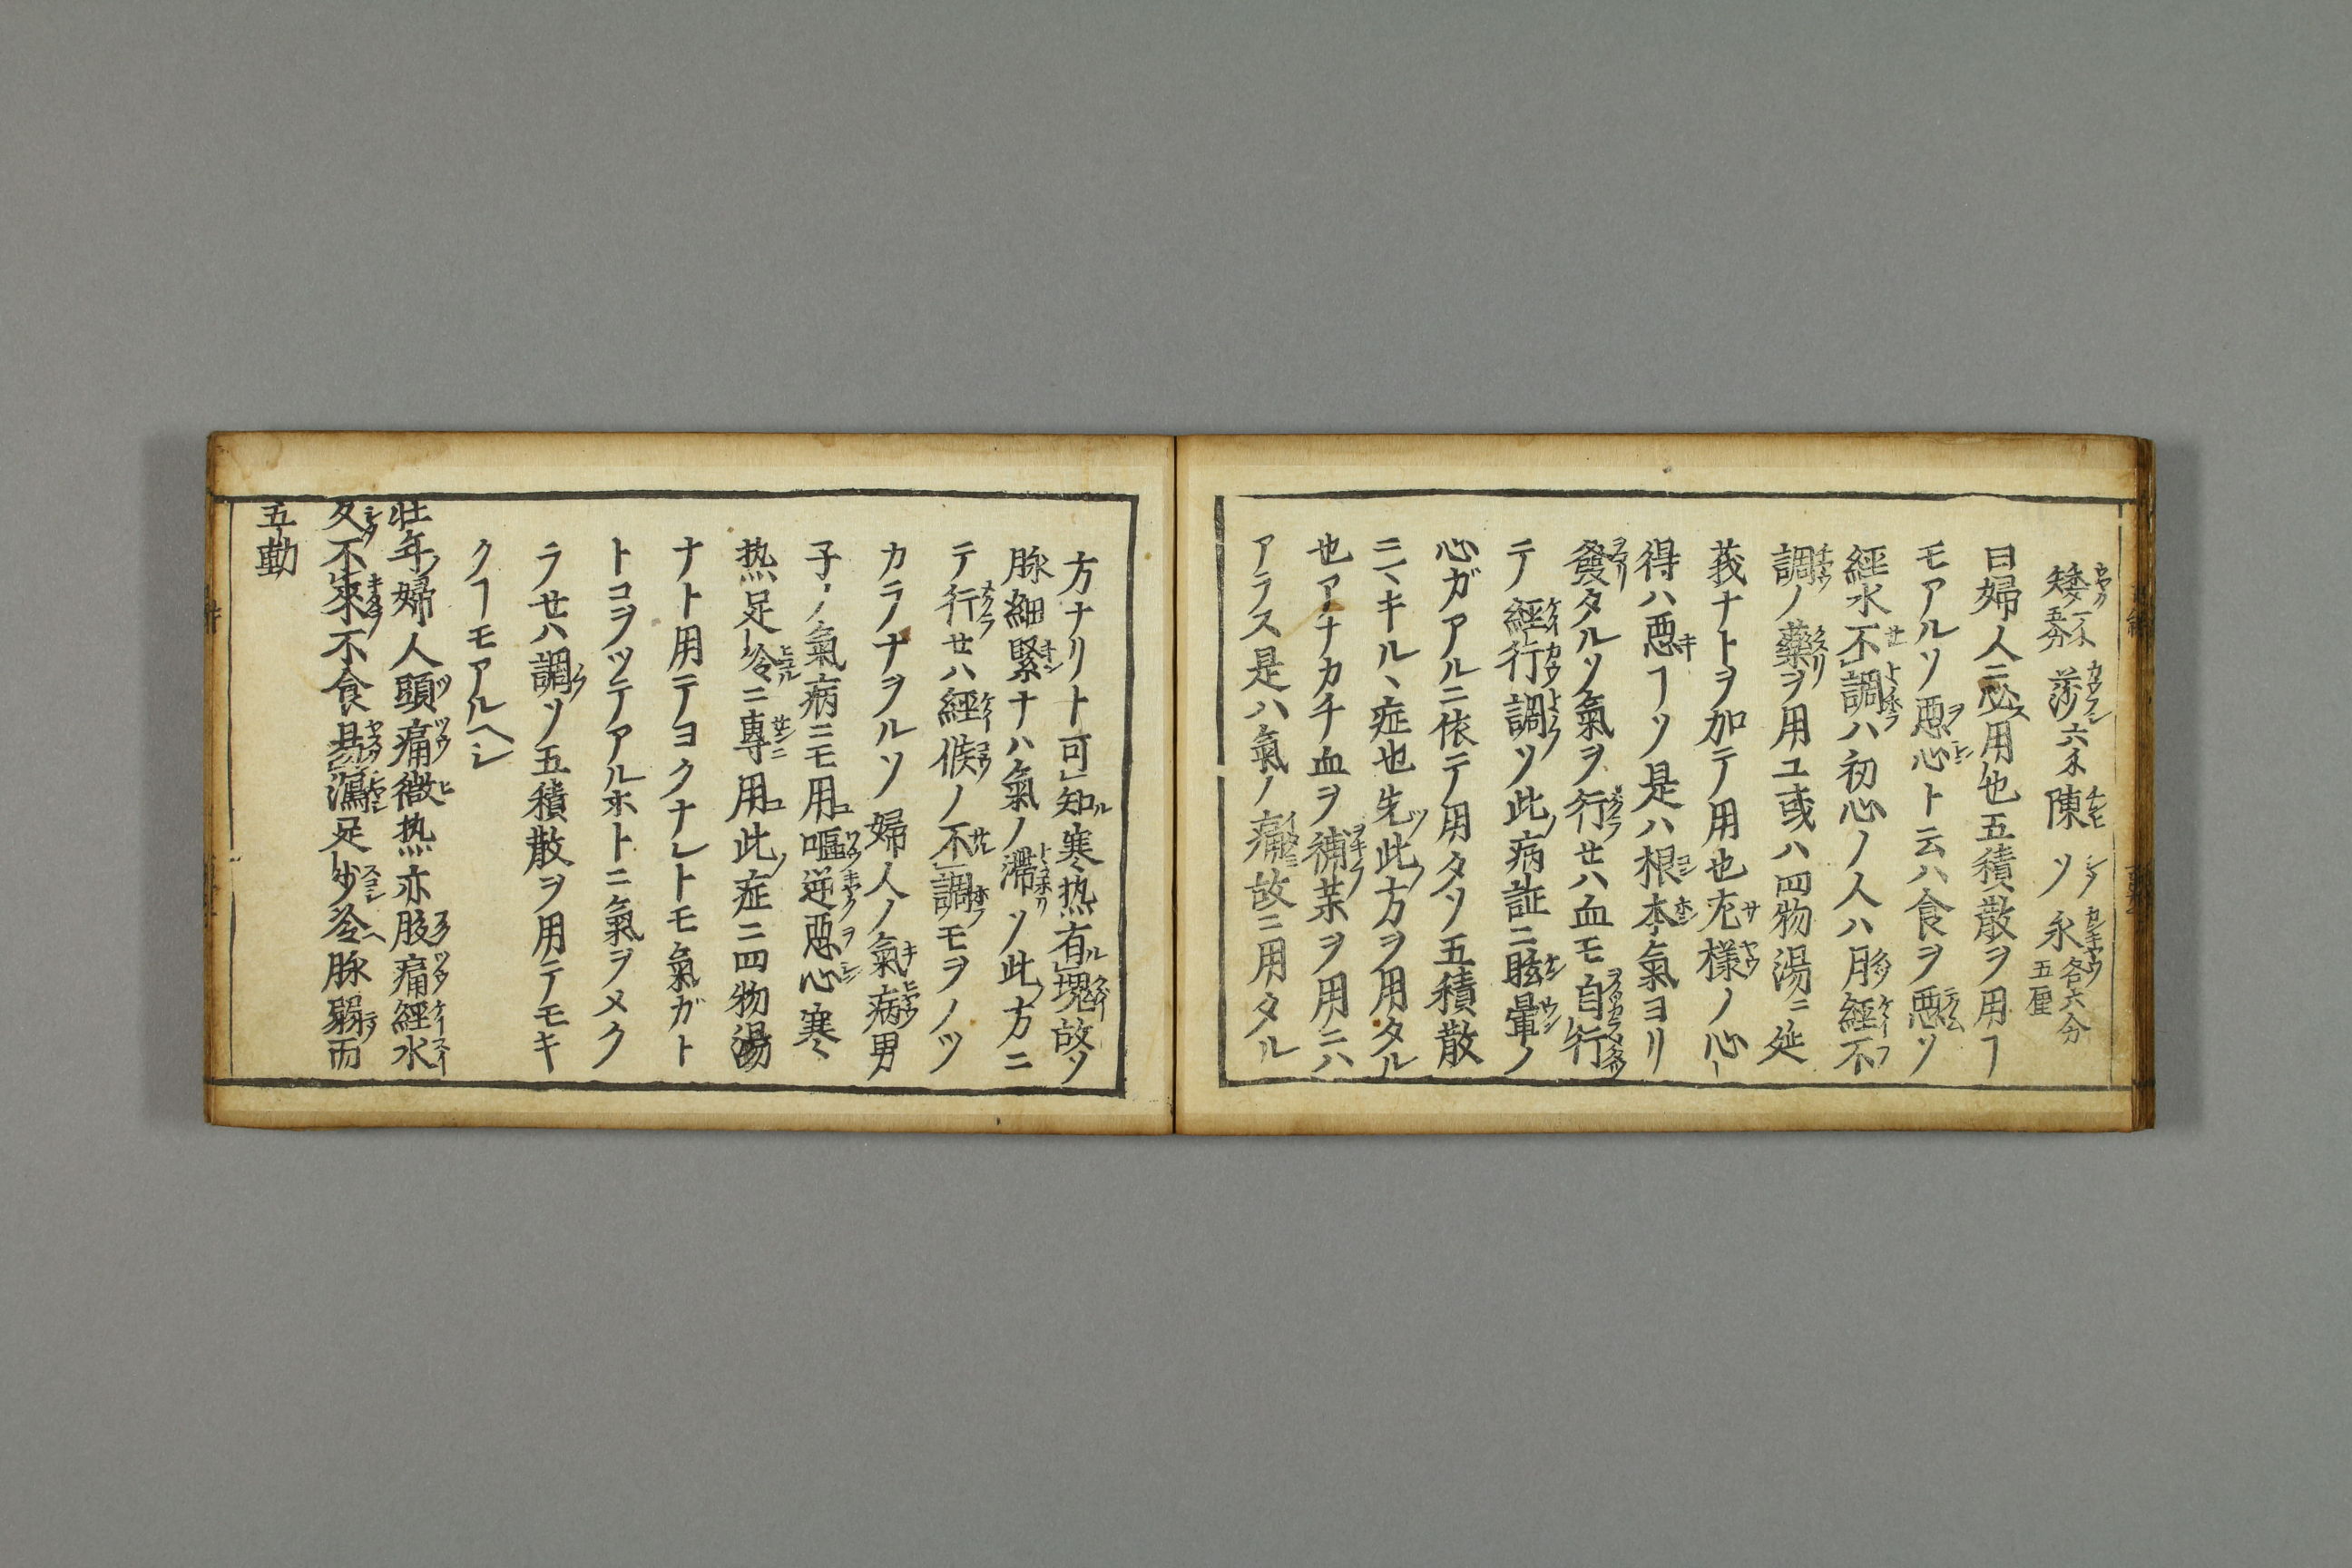 矮一分五分 莎六分 陳 ソ 永各六分五厘
曰婦人ニ必用也五積散ヲ用ヿ
モアルソ悪心ト云ハ食ヲ悪ソ
經水不調ハ初心ノ人ハ月經不
調ノ藥ヲ用ユ或ハ四物湯ニ延
莪ナトヲ加テ用也左樣ノ心
得ハ悪ヿソ是ハ根本氣ヨリ
發タルソ氣ヲ行セハ血モ自行
テ經行調ソ此病証ニ眩暈ノ
心ガアルニ依テ用タソ五積散
ニヽキル丶症也先此方ヲ用タル
也アナカチ血ヲ補薬ヲ用ニハ
アラス是ハ氣ノ痛故ニ用タル
方ナリト可知寒热有塊故ソ
脉細緊ナハ氣ノ滞ソ此方ニ
テ行セハ經候ノ不調モヲノツ
カラナヲルソ婦人ノ氣病男
子ノ氣病ニモ用嘔逆悪心寒
热足冷ニ專用此症ニ四物湯
ナト用テヨクナレトモ氣ガト
トコヲツテアルホトニ氣ヲメク
ラセハ調ソ五積散ヲ用テモキ
クヿモアルヘシ
壮年婦人頭痛微热亦股痛經水
久不來不食易瀉足少冷脉弱而
五動